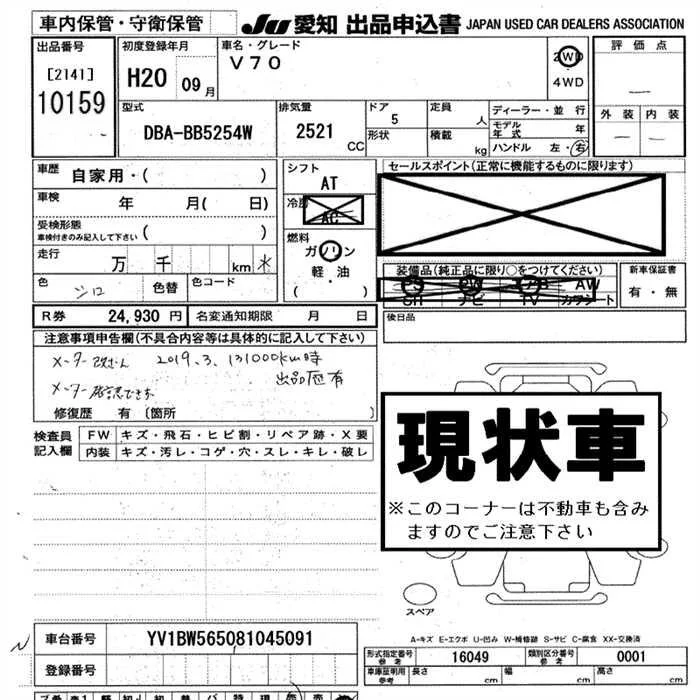 車内保管・守衛保管
JU 愛知 出品申込書 JAPAN USED CAR DEALERS ASSOCIATION
出品番号 初度登録年月 車名・グレード 評価点
[2141] H20 09月 V70 2WD
10159 4WD
外装 内装
型式 排気量 ドア 5 定員 人 ディーラー・並行
DBA-BB5254W 2521 CC 形状 積載 kg モデル年式 年
ハンドル 左・右
車歴 自家用・( ) シフト AT セールスポイント(正常に機能するものに限ります)
車検 年 月( 日) 冷房 AC
受検形態 車検付きのみ記入して下さい ( ) 燃料 ガソリン
走行 万 千 km ✳ 軽・油 装備品(純品に限り○をつけてください) 新車保証書
色 シロ 色替 色コード ( ) PS PW AB AW 有・無
SR ナビ TV カワシート
R券 24,930 円 名変通知期限 月 日 後日品
注意事項申告欄(不具合内容等は具体的に記入して下さい)
メーター改ざん 2019.3.131000km時
出品歴有
メーター確認できず
修復歴 有 〔箇所 〕
検査員記入欄 FW キズ・飛石・ヒビ割・リペア跡・X要
内装 キズ・汚レ・コゲ・穴・スレ・キレ・破レ
現状車
※このコーナーは不動車も含みますのでご注意下さい
スペア
A-キズ E-エクボ U-凹み W-補修跡 S-サビ C-腐食 XX-交換済
N 車台番号 YV1BW565081045091
形式指定番号 参考 16049 類別区分番号 参考 0001
登録番号 車庫証明用 参考 長さ cm 幅 cm 高さ cm